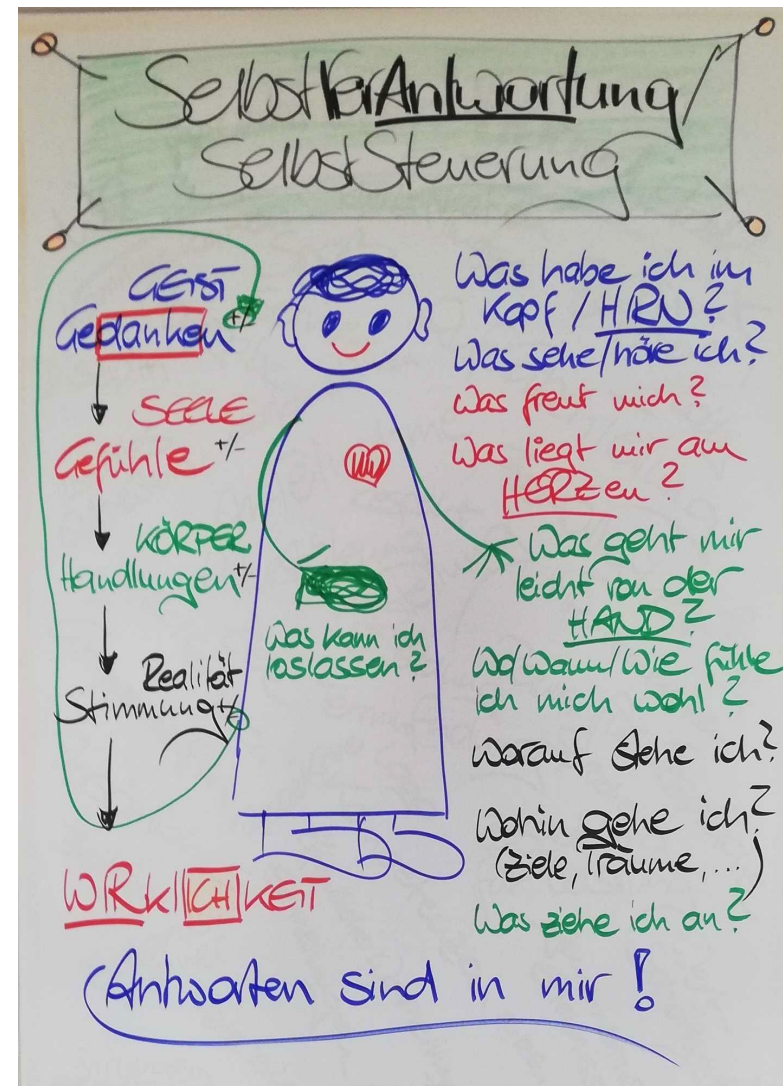 SelbstVerAntwortung/
SelbstSteuerung
GEIST
Gedanken +/-
SEELE
Gefühle +/-
KÖRPER
Handlungen +/-
Realität
Stimmung +/-
WIRKlICHKEIT
Was kann ich
loslassen?
Was habe ich im
Kopf / HIRN?
Was sehe/höre ich?
Was freut mich?
Was liegt mir am
HERZen?
Was geht mir
leicht von der
HAND?
Wo/Wann/Wie fühle
ich mich wohl?
Worauf stehe ich?
Wohin gehe ich?
(Ziele, Träume, ...)
Was ziehe ich an?
Antworten sind in mir!